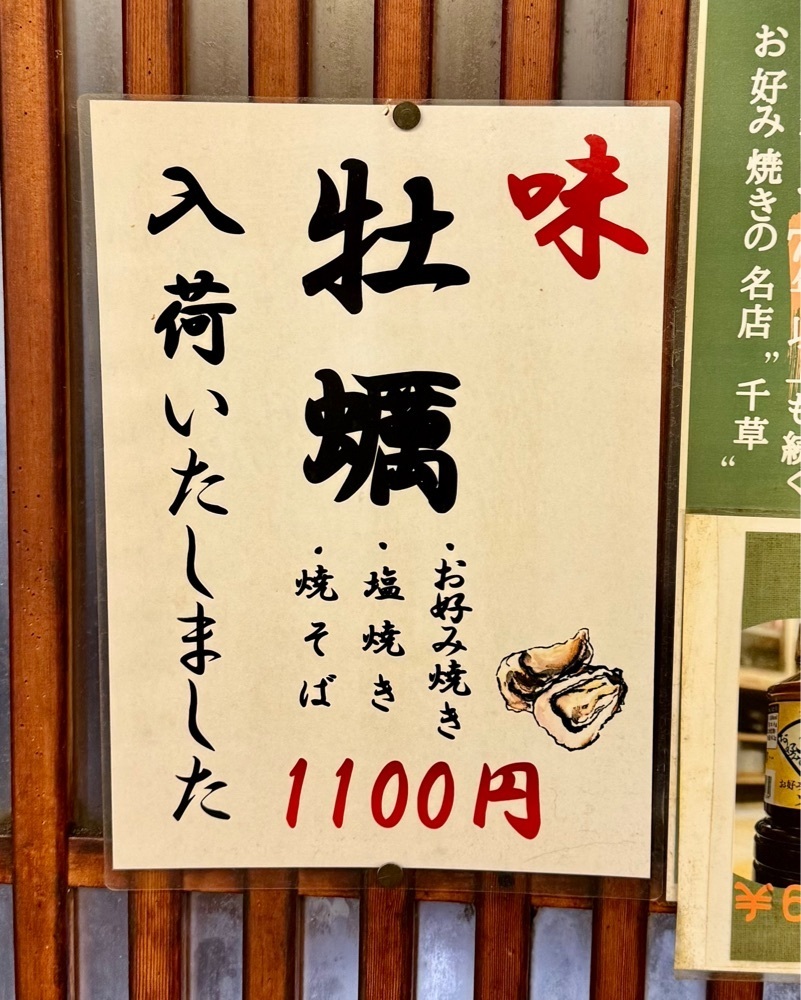 お好み焼きの名店”千草“
も続く
味
牡蠣
・お好み焼き
・塩焼き
・焼そば
1100円
入荷いたしました
¥6